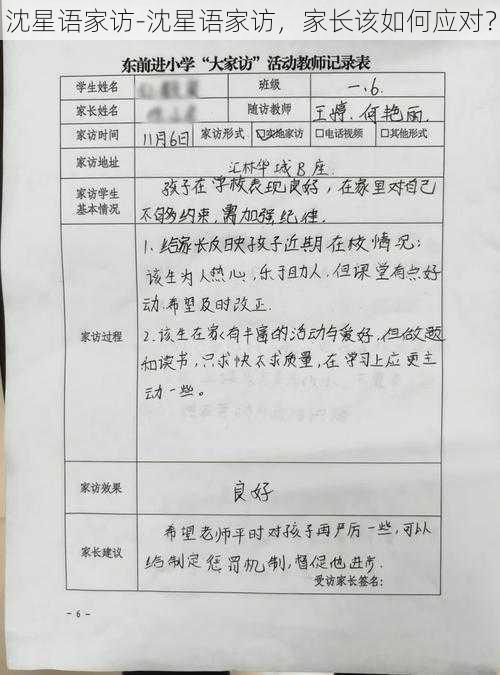 沈星语家访-沈星语家访，家长该如何应对？
东前进小学“大家访”活动教师记录表
学生姓名 班级 一.6
家长姓名 随访教师 王婷.何艳丽
家访时间 11月6日 家访形式 ☑实地家访 □电话视频 □其他形式
家访地址 汇林华城B座
家访学生基本情况 孩子在学校表现良好，在家里对自己
不够约束，需加强纪律.
家访过程
1.给家长反映孩子近期在校情况：
该生为人热心，乐于助人.但课堂有点好
动.希望及时改正.
2.该生在家有丰富的活动与爱好，但做题
和读书，只求快不求质量，在学习上应更主
动一些。
家访效果 良好
家长建议 希望老师平时对孩子再严厉一些，可以
给制定惩罚机制，督促他进步.
受访家长签名：
- 6 -